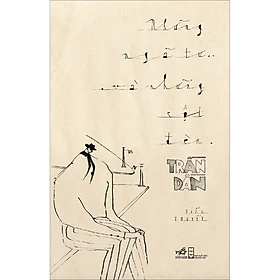 Những
ngã tư..
và những
cột
đèn.
TRẦN
DẦN
TIỂU
THUYẾT